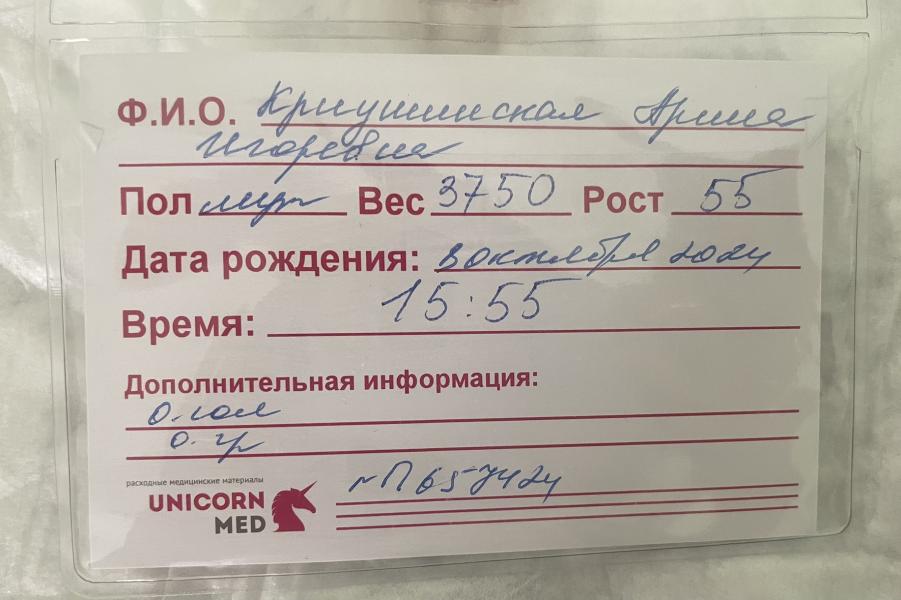 Ф.И.О. Криушинская Арина
Игоревна
Пол муж Вес 3750 Рост 55
Дата рождения: 8 октября 2024
Время: 15:55
Дополнительная информация:
о.гол
о.гр
расходные медицинские материалы
UNICORN
MED